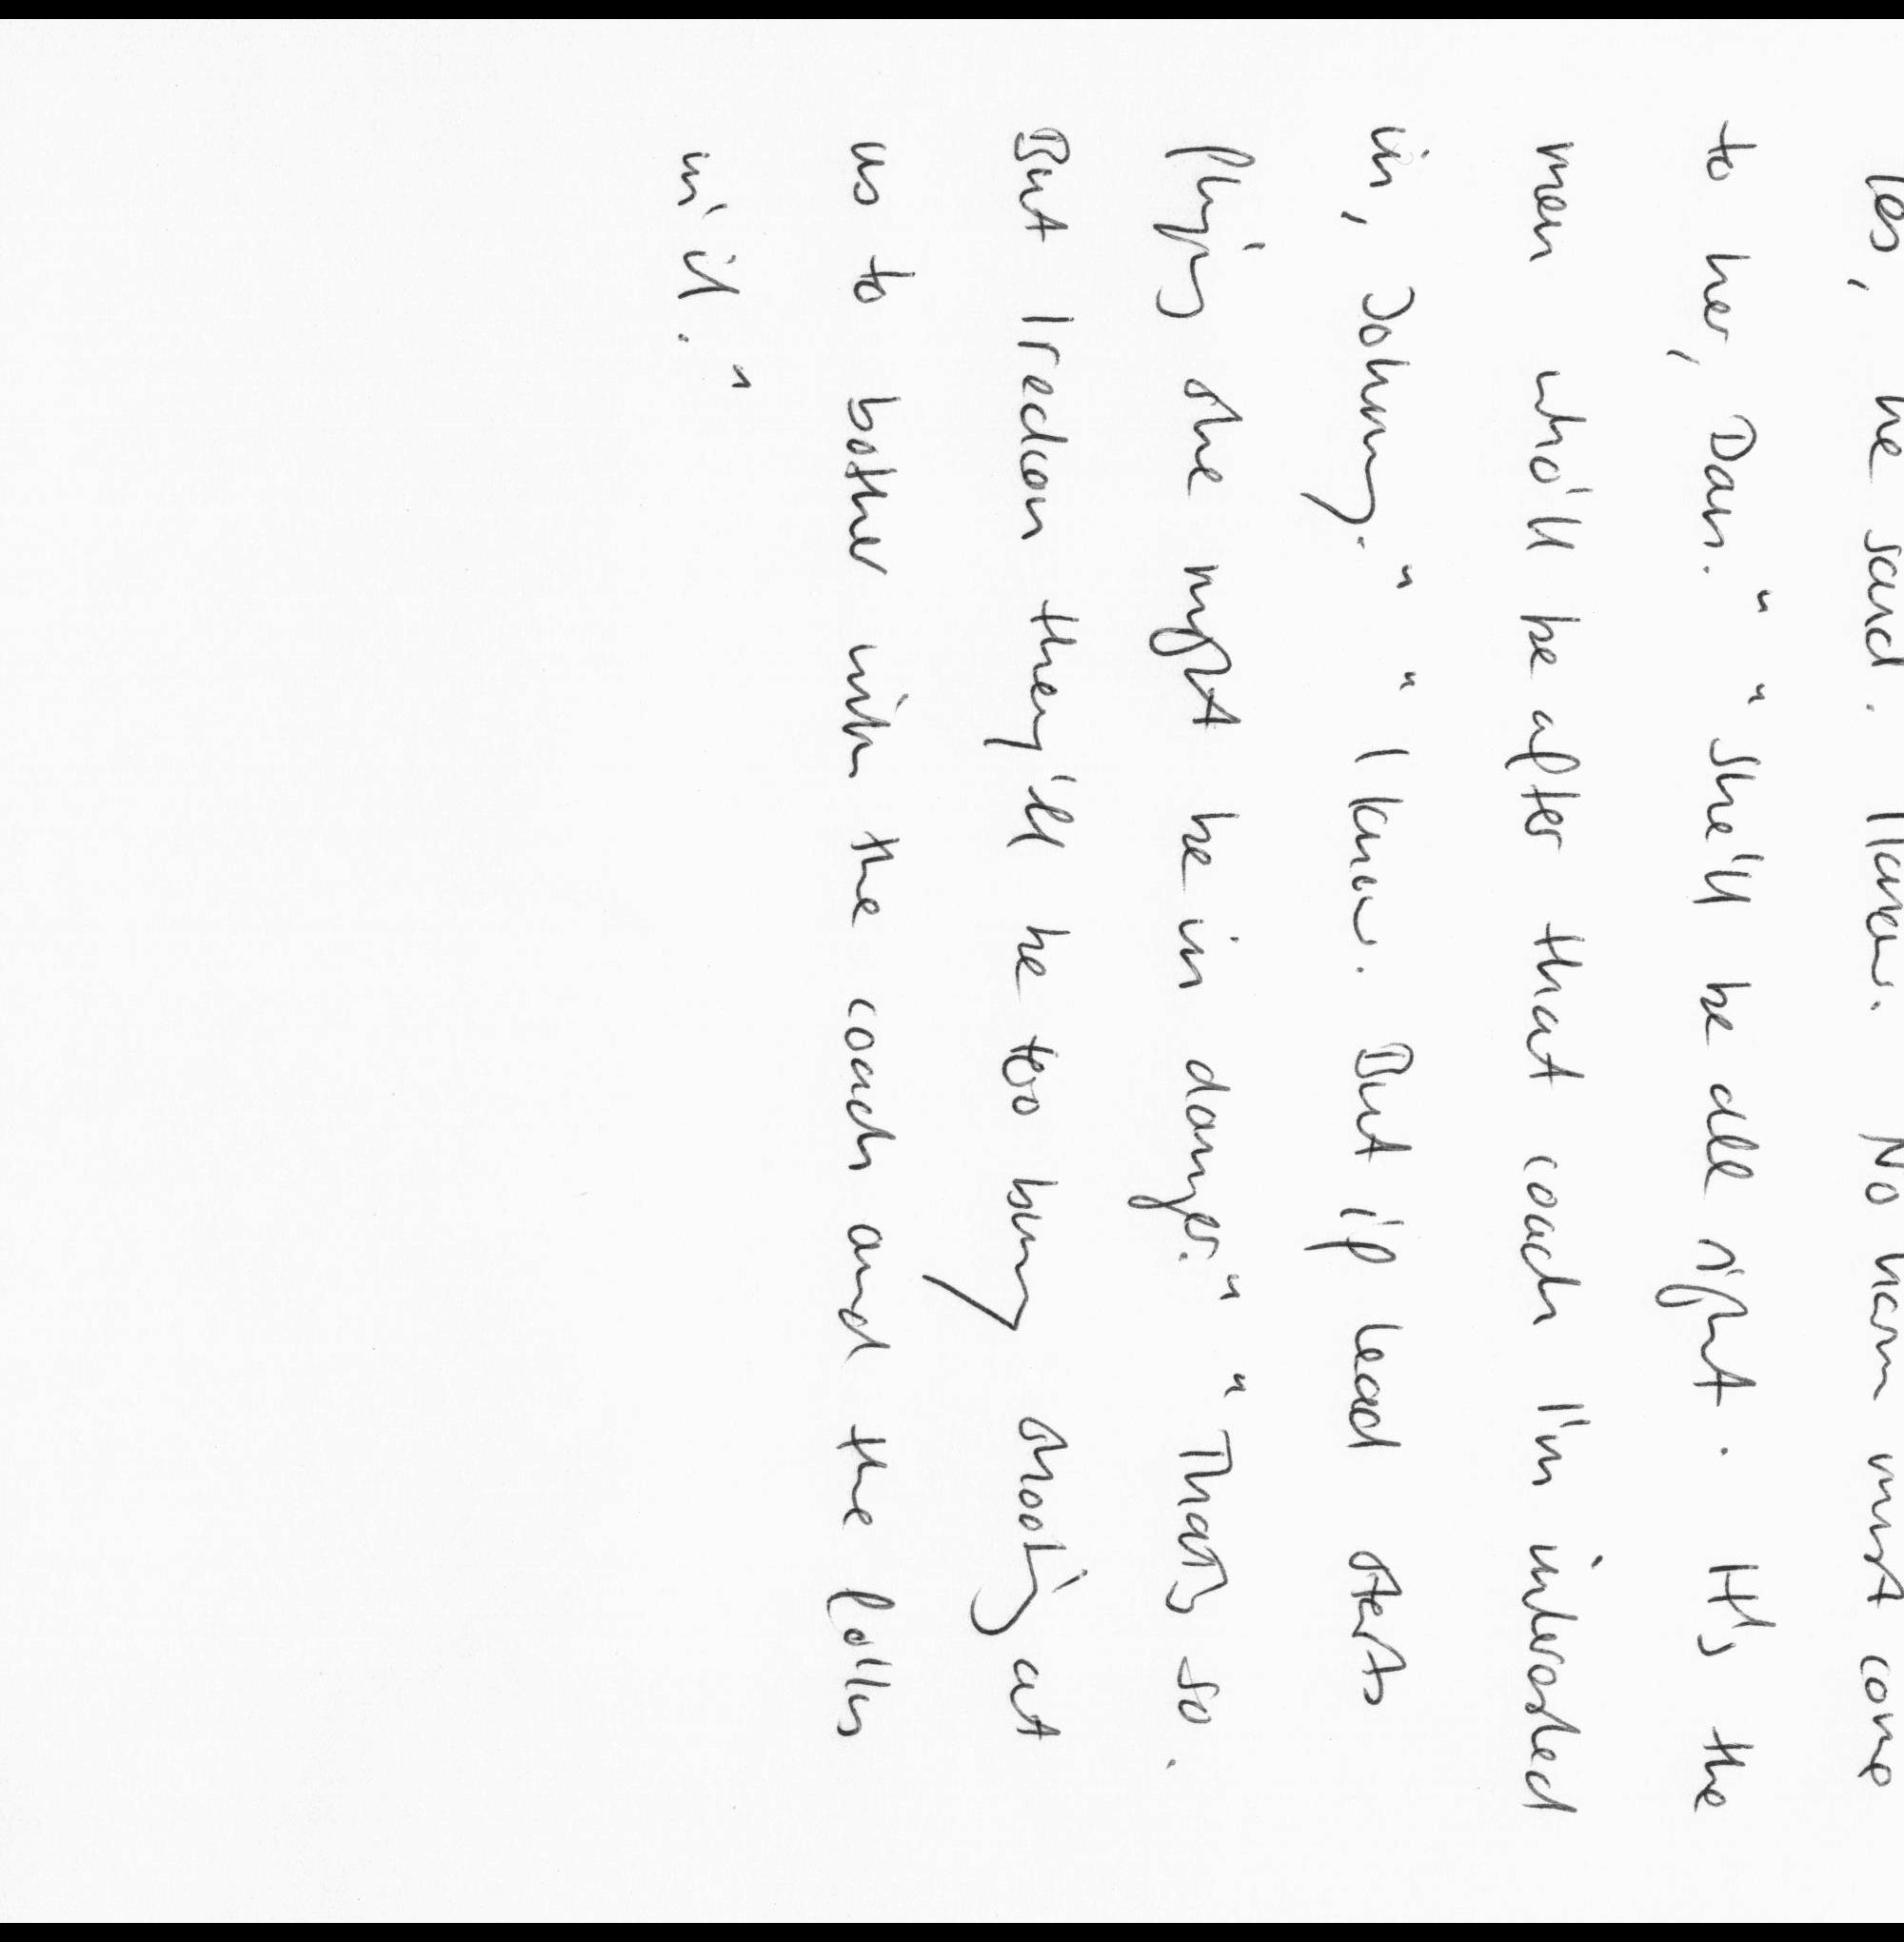 Yes, he said. Flanou. No harm must come
to her, Dan." "She'll be all right. It's the
men who'll be after that coach I'm interested
in, Johnny." "I know. But if lead starts
flying she might be in danger." "That's so.
But I reckon they'll be too busy shooting at
us to bother with the coach and the folks
in it."